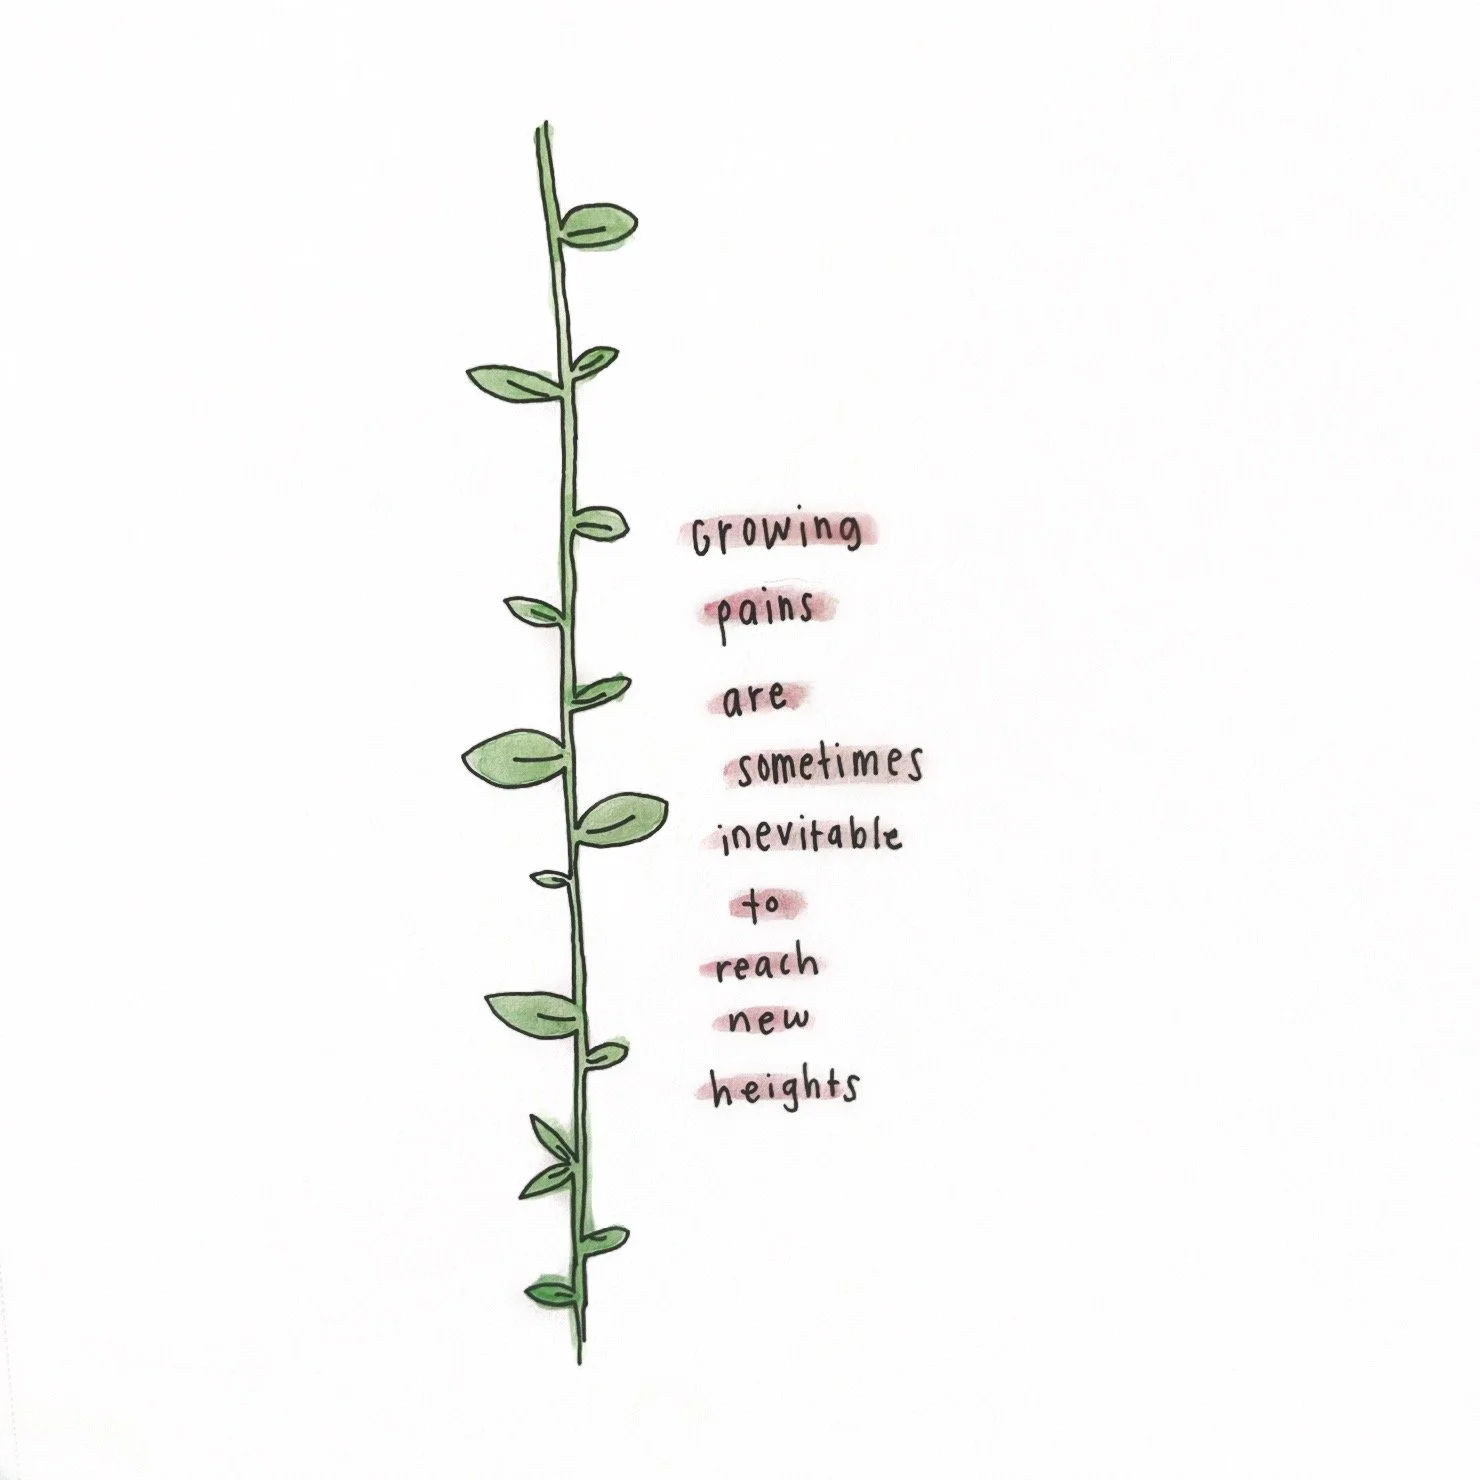 Growing
pains
are
sometimes
inevitable
to
reach
new
heights